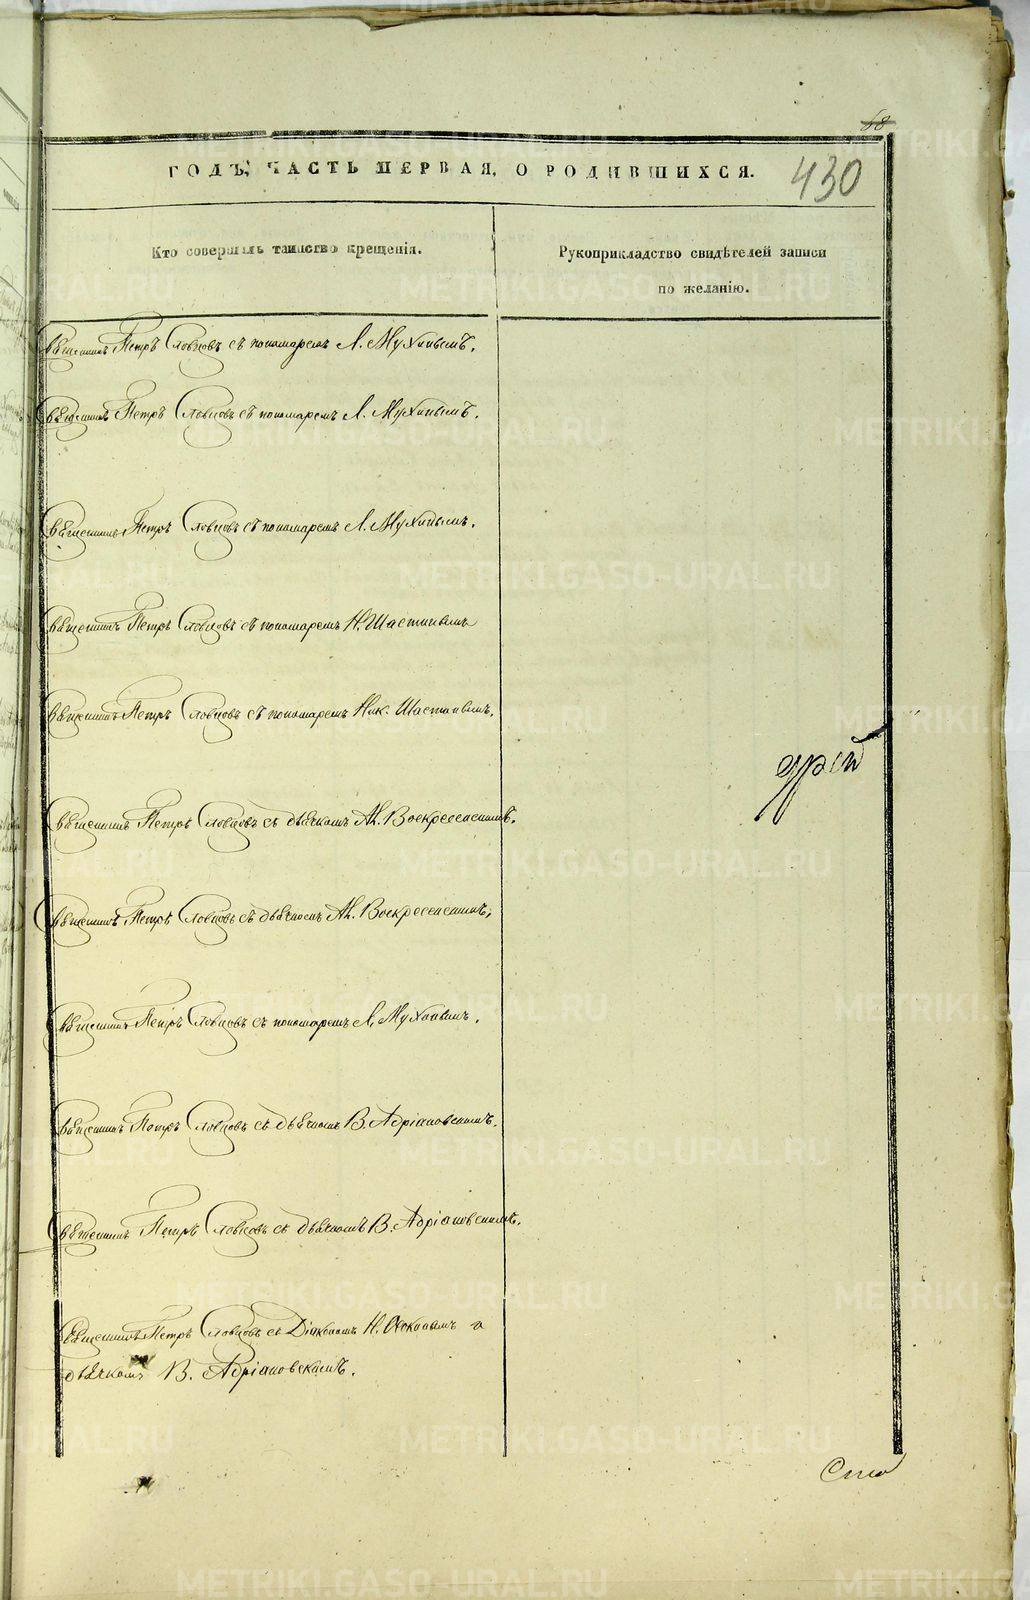 68
ГОДЪ, ЧАСТЬ ПЕРВАЯ, О РОДИВШИХСЯ.
430
Кто совершалъ таинство крещенія.
Рукоприкладство свидѣтелей записи
по желанію.
Священникъ Петръ Словцовъ съ пономаремъ Л. Мухинымъ.
Священникъ Петръ Словцовъ съ пономаремъ Л. Мухинымъ.
Священникъ Петръ Словцовъ съ пономаремъ Л. Мухинымъ.
Священникъ Петръ Словцовъ съ пономаремъ Н. Шастинымъ
Священникъ Петръ Словцовъ съ пономаремъ Ник. Шастинымъ.
Священникъ Петръ Словцовъ съ дьячкомъ Ал. Воскресенскимъ.
Священникъ Петръ Словцовъ съ дьячкомъ Ал. Воскресенскимъ.
Священникъ Петръ Словцовъ съ пономаремъ Л. Мухинымъ.
Священникъ Петръ Словцовъ съ дьячкомъ В. Адріановскимъ.
Священникъ Петръ Словцовъ съ дьячкомъ В. Адріановскимъ.
Священникъ Петръ Словцовъ съ Діакономъ Н. и
дьячкомъ В. Адріановскимъ.
METRIKI.GASO-URAL.RU